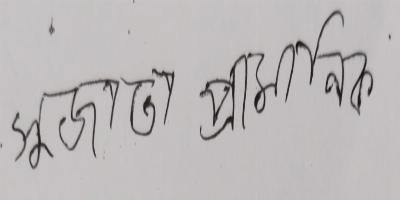 সুজাতা প্রামানিক